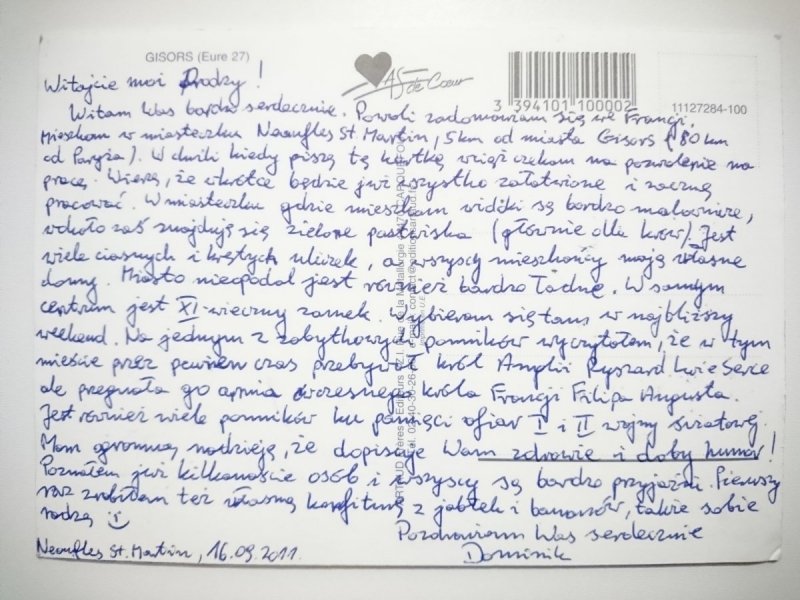 GISORS (Eure 27)
AS de Cœur
3 394101 100002
11127284-100
Witajcie moi Drodzy!
Witam Was bardzo serdecznie. Powoli zadomawiam się we Francji.
Mieszkam w miasteczku Neaufles St. Martin, 5 km od miasta Gisors (80 km
od Paryża). W chwili kiedy piszę tę kartkę wciąż czekam na pozwolenie na
pracę. Wierzę, że wkrótce będzie już wszystko załatwione i zacznę
pracować. W miasteczku gdzie mieszkam widoki są bardzo malownicze,
wokoło zaś znajdują się zielone pastwiska (głównie dla krów). Jest
wiele ciasnych i krętych uliczek, a wszyscy mieszkańcy mają własne
domy. Miasto nieopodal jest również bardzo ładne. W samym
centrum jest XI-wieczny zamek. Wybieram się tam w najbliższy
weekend. Na jednym z zabytkowych pomników wyczytałem, że w tym
mieście przez pewien czas przebywał król Anglii Ryszard Lwie Serce
ale pregnała go armia ówczesnego króla Francji Filipa Augusta.
Jest również wiele pomników ku pamięci ofiar I i II wojny światowej.
Mam ogromną nadzieję, że dopisuje Wam zdrowie i doby humor!
Poznałem już kilkanaście osób i wszyscy są bardzo przyjaźni. Pierwszy
raz zrobiłem też własną konfiturę z jabłek i bananów, także sobie
radzę :)
Pozdrawiam Was serdecznie
Dominik
Neaufles St. Martin, 16.09.2011.